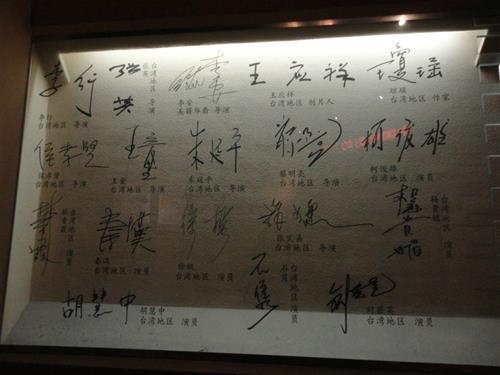 李行
李行
台湾地区 导演
张英
张英
台湾地区 导演
李安
美籍华裔 导演
王应祥
王应祥
台湾地区 制片人
瓊瑶
琼瑶
台湾地区 作家
侯孝贤
台湾地区 导演
王童
王童
台湾地区 导演
朱延平
朱延平
台湾地区 导演
蔡明亮
台湾地区 导演
柯俊雄
柯俊雄
台湾地区 演员
林青霞
台湾地区 演员
秦漢
秦汉
台湾地区 演员
徐枫
台湾地区 演员
张艾嘉
台湾地区 演员
杨贵媚
台湾地区 演员
胡慧中
胡慧中
台湾地区 演员
石隽
台湾地区 演员
台湾地区 演员